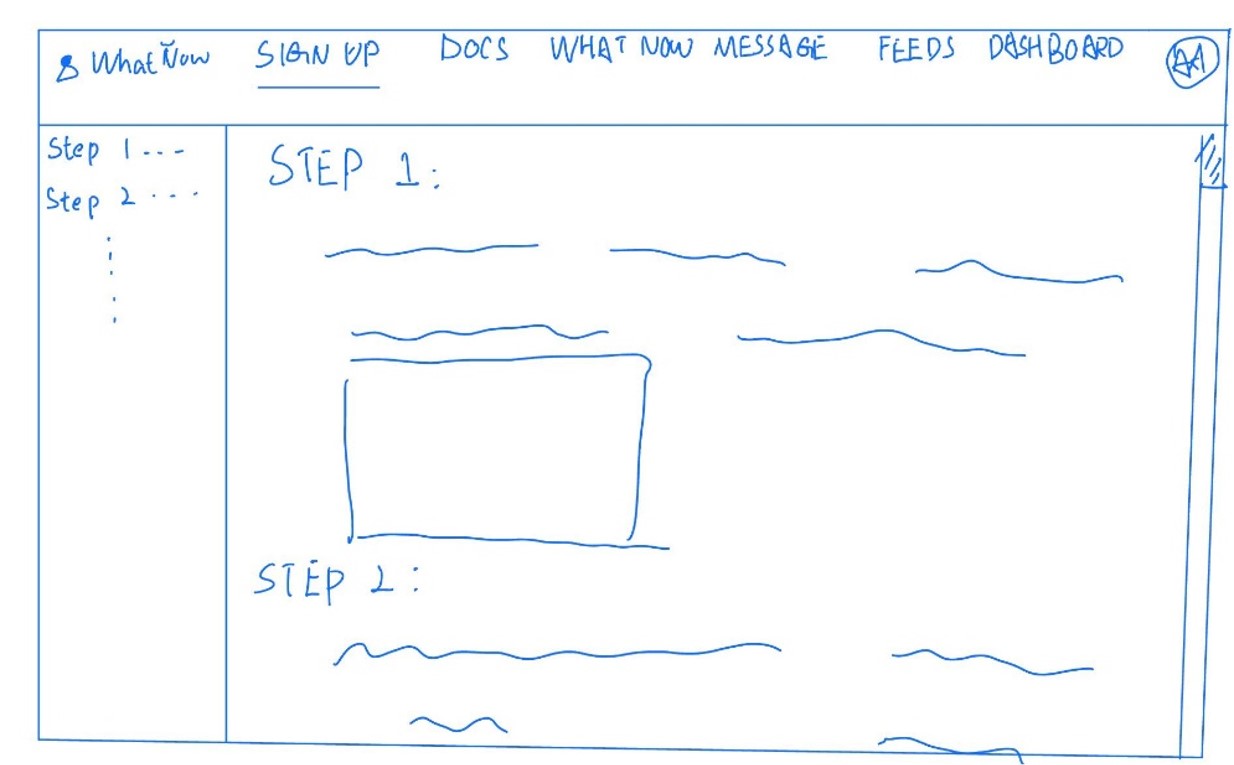 What Now SIGN UP DOCS WHAT NOW MESSAGE FEEDS DASHBOARD
Step 1 ---
Step 2 ...
STEP 1:
STEP 2: